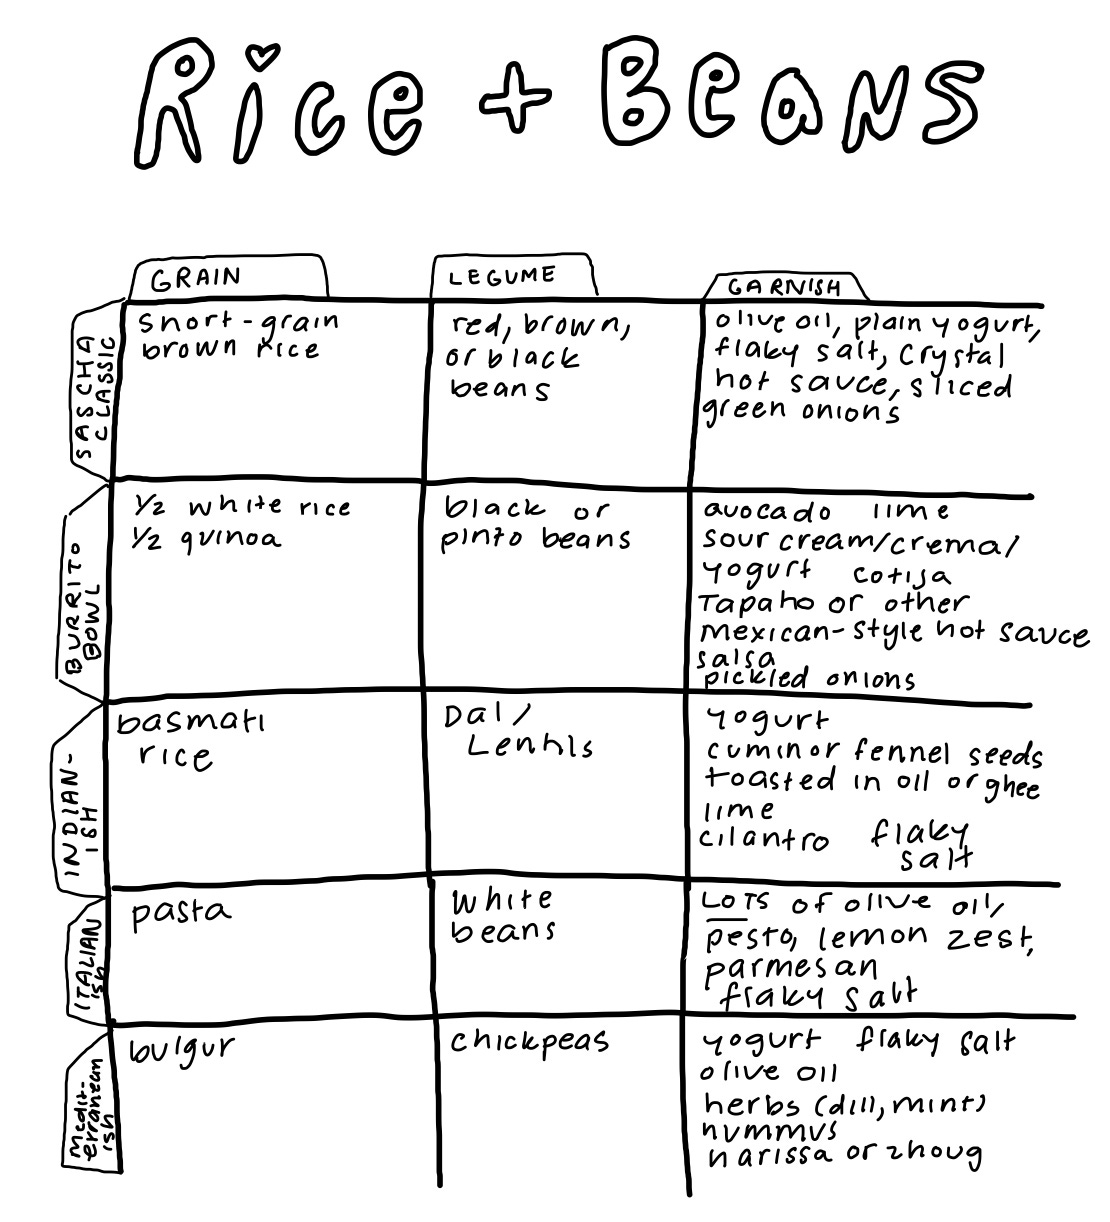 Rice + Beans
GRAIN
LEGUME
GARNISH
SASCHA
CLASSIC
short-grain
brown rice
red, brown,
or black
beans
olive oil, plain yogurt,
flaky salt, crystal
hot sauce, sliced
green onions
BURRITO
BOWL
1/2 white rice
1/2 quinoa
black or
pinto beans
avocado lime
sour cream/crema/
yogurt cotija
Tapaho or other
mexican-style hot sauce
salsa
pickled onions
INDIAN-
ISH
basmati
rice
Dal/
Lentils
yogurt
cumin or fennel seeds
toasted in oil or ghee
lime
cilantro flaky
salt
ITALIAN
ish
pasta
white
beans
LOTS of olive oil/
pesto, lemon zest,
parmesan
flaky salt
medit-
erranean
ish
bulgur
chickpeas
yogurt flaky salt
olive oil
herbs (dill, mint)
hummus
harissa or zhoug